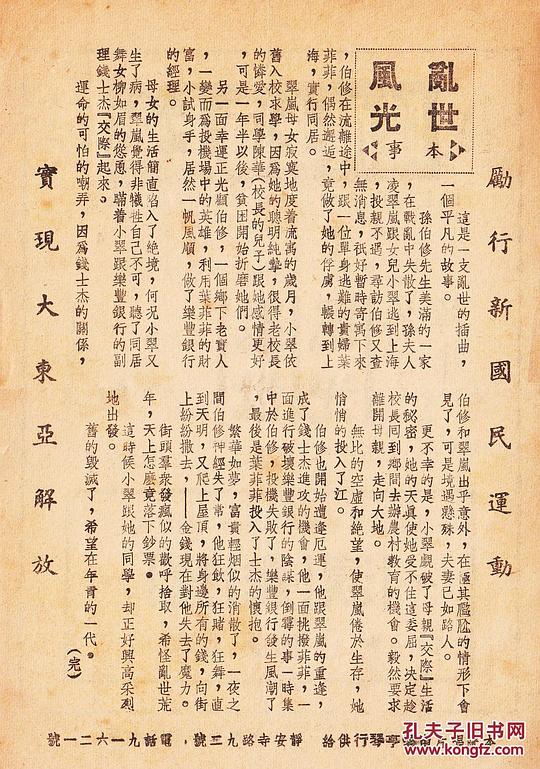 勵行新國民運動
亂世
風光
本
事
這是一支亂世的插曲，
一個平凡的故事。
孫伯修先生美滿的一家
，在戰亂中失散了，孫夫人
凌翠嵐跟女兒小翠逃到上海
，投親不遇，尋訪伯修又杳
無消息，祇好暫時寄寓下來
，伯修在流離途中，跟一位單身逃難的貴婦葉
菲菲，偶然邂逅，竟做了她的俘虜，輾轉到上
海，實行同居。
翠嵐母女寂寞地度着流寓的歲月，小翠依
舊入校求學，因為她的聰明純摯，很得老校長
的憐愛，同學陳華（校長的兒子）跟她感情更好
，可是一年半以後，貧困開始折磨她們。
另一面幸運正光顧伯修，一個鄉下老實人
，一變而為投機場中的英雄，利用葉菲菲的財
富，小試身手，居然一帆風順，做了樂豐銀行
的經理。
母女的生活簡直陷入了絕境，何況小翠又
生了病，翠嵐覺得非犧牲自己不可，聽了同居
舞女柳如眉的慫恿，瞞着小翠跟樂豐銀行的副
理錢士杰『交際』起來。
運命的可怕的嘲弄，因為錢士杰的關係，
伯修和翠嵐出乎意外，在極其尷尬的情形下會
見了，可是境遇懸殊，夫妻已如路人。
更不幸的是，小翠覷破了母親『交際』生活
的秘密，她的天真使她受不住這委屈，決定趁
校長回到鄉間去辦農村教育的機會。毅然要求
離開母親，走向大地。
無比的空虛和絕望，使翠嵐倦於生存，她
悄悄的投入了江。
伯修也開始遭逢厄運，他跟翠嵐的重逢，
成了錢士杰進攻的機會，他一面挑撥菲菲，一
面進行破壞樂豐銀行的陰謀，倒霉的事一時集
中於伯修，投機失敗了，樂豐銀行發生風潮了
，最後是葉菲菲投入了士杰的懷抱。
繁華如夢，富貴輕烟似的消散了，一夜之
間伯修神經失了常，他狂飲，狂賭，狂舞，直
到天明，又爬上屋頂，將身邊所有的錢，向街
上紛紛撒去，——金錢現在對他失去了魔力。
街頭羣衆發瘋似的歡呼拾取，希怪亂世荒
年，天上怎麼竟落下鈔票。
這時候小翠跟她的同學，却正好興高采烈
地出發。
舊的毀滅了，希望在年青的一代。
（完）
實現大東亞解放
琴行供給 靜安寺路九三號，電話九一六二一號
孔夫子旧书网